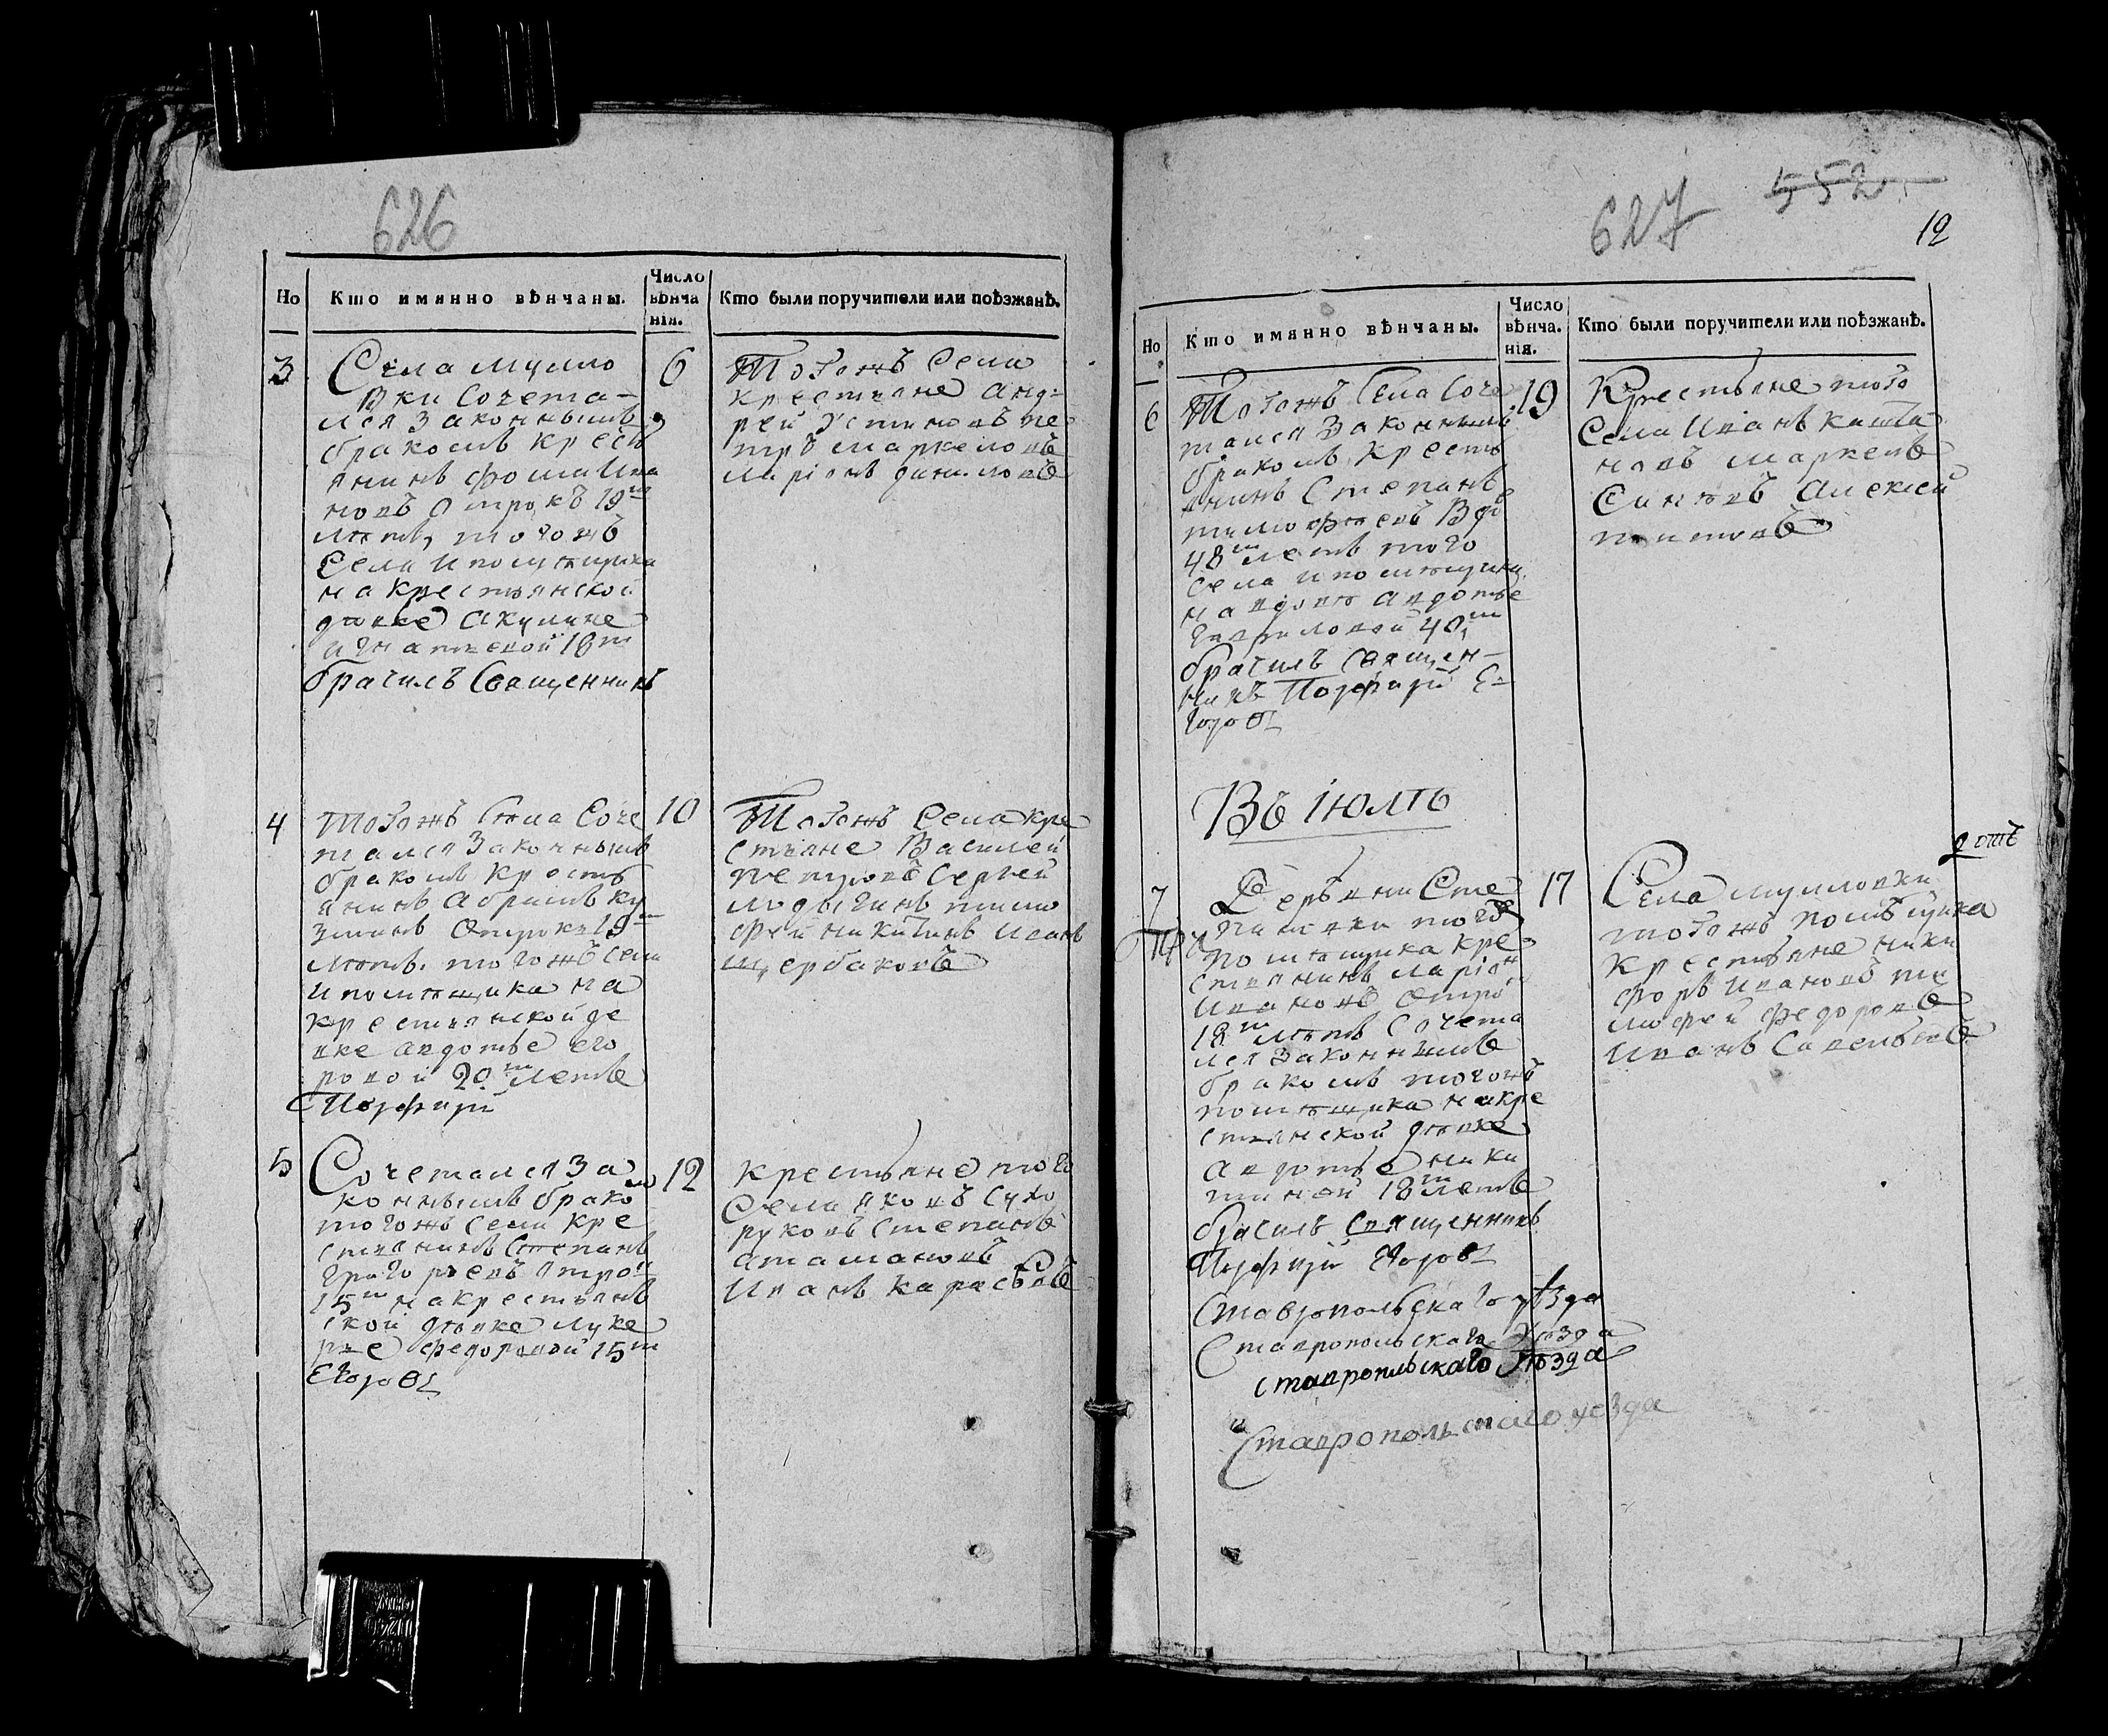 626
Но
Кто имянно вѣнчаны.
Число
вѣнча
нія.
Кто были поручители или поѣзжанѣ.
3
Села мулло
вки Сочета-
лся Законнымъ
бракомъ Кресть
янинъ фома Ива
новъ Отрокъ 19т
лѣтъ, тогожъ
Села и помѣщика
на крестьянской
девке акулине
игнатьевой 18т
брачилъ Священникъ
6
Тогожъ Села
крестьяне анд-
рей Устиновъ пе
тръ маркеловъ
ларіонъ даниловъ
4
Тогожъ Села Соче
тался Законнымъ
бракомъ Кресть
янинъ абрамъ Ку
зминъ Отрокъ 19
лѣтъ. тогожъ Села
и помѣщика на
крестьянской де
вке авдотье его
ровой 20т летъ
Порфирй
10
Тогожъ Села кре
стьяне Василей
петровъ Сергей
тимо
фей никитинъ Иванъ
щербаковъ
5
Сочетался За
коннымъ брако
мъ
тогожъ Села Кре
стьянинъ Степанъ
григорьевъ Отро
15т на крестьянъ
ской девке луке
рье федоровой 15т
Егоровъ
12
крестьяне того
Села яковъ Сухо
руковъ Степанъ
атамановъ
Иванъ карасевъ
627
552
12
Но
Кто имянно вѣнчаны.
Число
вѣнча.
нія.
Кто были поручители или поѣзжанѣ.
6
Тогожъ Села Соче
тался Законнымъ
бракомъ Кресть
янинъ Степанъ
тимофѣевъ Вдо
48т летъ того
Села и помѣщика
на вдовѣ авдотье
гавриловой 40т
брачилъ Священ-
никъ Порфирй Е-
горовъ
19
Крестьяне того
Села Иванъ
маркелъ
Алексей
титовъ
Въ Іюлѣ
2 отъ
7
Деревни Сте
пановки тогожъ
помѣщика кре
стьянинъ ларіонъ
Ивановъ Отро
18т лѣтъ Сочета
лся Законнымъ
бракомъ тогожъ
помѣщика на кре
стьянской девке
авдотье ники
тиной 18т летъ
брачилъ Священникъ
Порфирй Егоровъ
17
Села мулловки
тогожъ помѣщика
крестьяне ники
форъ Ивановъ ти
мофей федоровъ
Иванъ Савельевъ
Ставропольскаго уѣзда
Ставропольскаго Уѣзда
Ставропольскаго Уѣзда
Ставропольскаго уезда